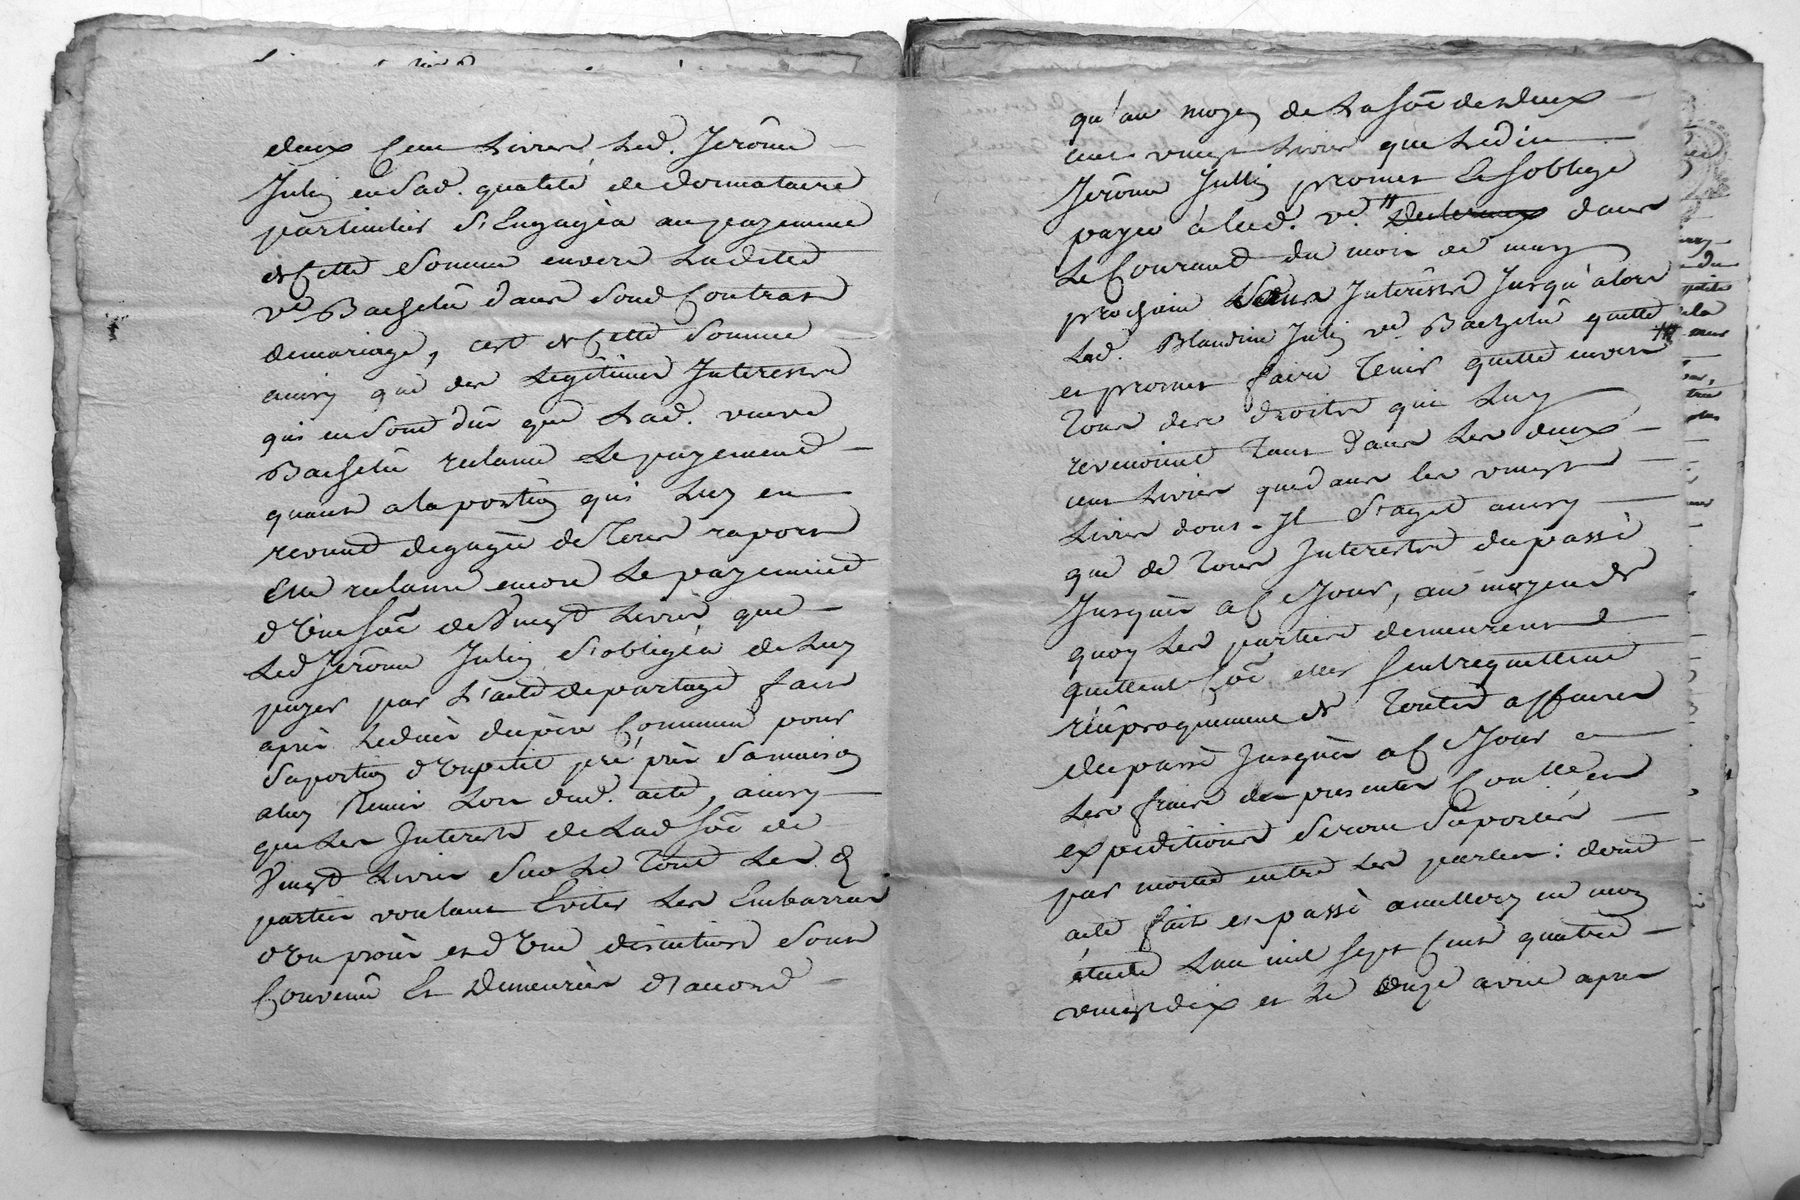 deux Cent Livres, Led. Jerôme
Julin en Sad. qualité de donnataire
particulier S'Engagea au payement
de Cette Somme envers Ladite
ve. Bachelû dans Sond Contrat
demariage, c'est de Cette Somme
ainsy que des Legitimes Interests
qui en Sont dûs que Lad. veuve
Bachelû reclame Le payement
quant a la portion qui Luy en
revient degagée de Tous raports
Elle reclame encore Le payement
d'Une Soê de Vingt Livres que
Led Jerôme Julin S'obligea de Luy
payer par L'acte de partage fait
après Ledeces du père Commun pour
Saportion d'Unpetit pré près Samaison
aluy Remis Lors dud. acte, ainsy
que Les Interests de Lad Soê de
Vingt Livres Sur Le Tout Les
parties voulant Eviter Les Embarras
d'Un procès et d'Une discution Sont
Convenû Et Demeurées d'accord
qu'au moyen de La Soê de deux
cent vingt Livres que Ledit
Jerôme Jullin promet Et S'oblige
payer à Lad. ve. dans
Le Courant du mois de may
prochain Sans Interests Jusqu'alors
Lad. Blandine Julin ve Bachelû quitte
et promet faire Tenir quitte envers
Tous des droits qui Luy
revenoient Tant dans Les deux
cent Livres que dans les vingt
Livres dont Il S'agit ainsy
que de Tous Interests du passé
Jusques a Ce Jour, au moyen de
quoy Les parties demeurent
quittent Soê elles S'entrequittent
réciproquement de Toutes affaires
du passé Jusques a Ce Jour
Les frais des presentes Controlle et
expeditions Seront Suportés
par moitié entre Les parties : dont
acte fait et passé en mon
étude L'an mil Sept Cent quatre
vingt dix et Le Onze avril apres